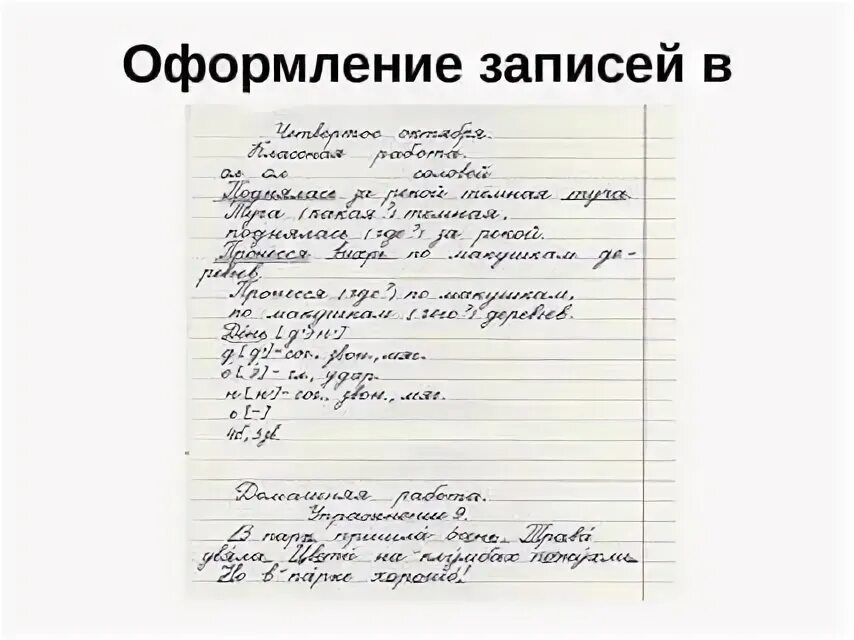 Оформление записей в
Четвертое октября.
Классная работа.
ол ол соловей
Поднялась за рекой тёмная туча.
Туча (какая?) тёмная,
поднялась (где?) за рекой.
Пронёсся вихрь по макушкам де-
ревьев.
Пронёсся (где?) по макушкам,
по макушкам (чего?) деревьев.
День
д [д'] - сог., звон., мяг.
гл., удар.
н [н'] - сог., звон., мяг.
[-]
4б, 3зв.
Домашняя работа.
Упражнение 9.
В парк пришла Трава
увяла. Цветы на клумбах
Но в парке хорошо!